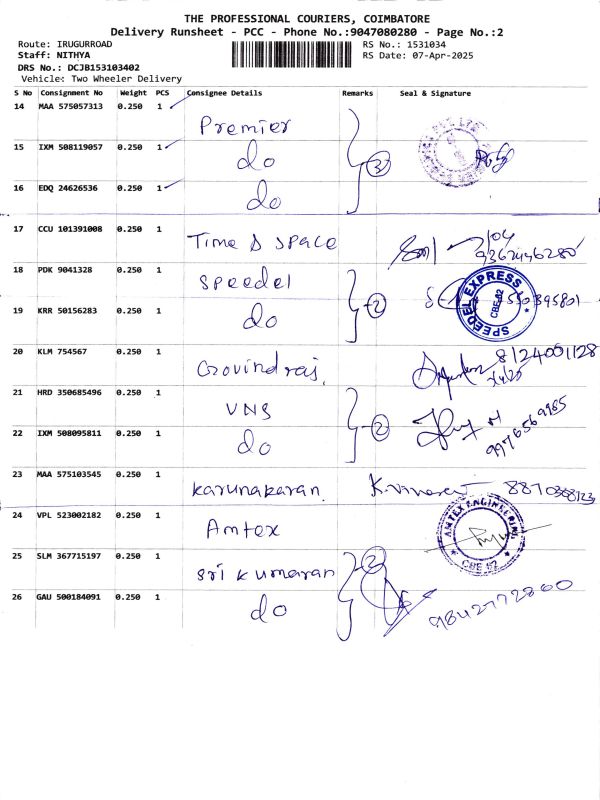 THE PROFESSIONAL COURIERS, COIMBATORE
Delivery Runsheet - PCC - Phone No.:9047080280 - Page No.:2
Route: IRUGURROAD
RS No.: 1531034
Staff: NITHYA
RS Date: 07-Apr-2025
DRS No.: DCJB153103402
Vehicle: Two Wheeler Delivery
S No Consignment No Weight PCS Consignee Details Remarks Seal & Signature
14 MAA 575057313 0.250 1 Premier
15 IXM 508119057 0.250 1 do 3
16 EDQ 24626536 0.250 1 do
17 CCU 101391008 0.250 1 Time & space 9362446280
18 PDK 9041328 0.250 1 Speedel 2 SPEEDEL EXPRESS CBE-62
19 KRR 50156283 0.250 1 do
20 KLM 754567 0.250 1 Govindraj. 8124001128
21 HRD 350685496 0.250 1 VNS 2 9976569985
22 IXM 508095811 0.250 1 do
23 MAA 575103545 0.250 1 karunakaran.
24 VPL 523002182 0.250 1 Amtex AMTEX ENGINEERING
25 SLM 367715197 0.250 1 sri kumaran 2
26 GAU 500184091 0.250 1 do 9842772860